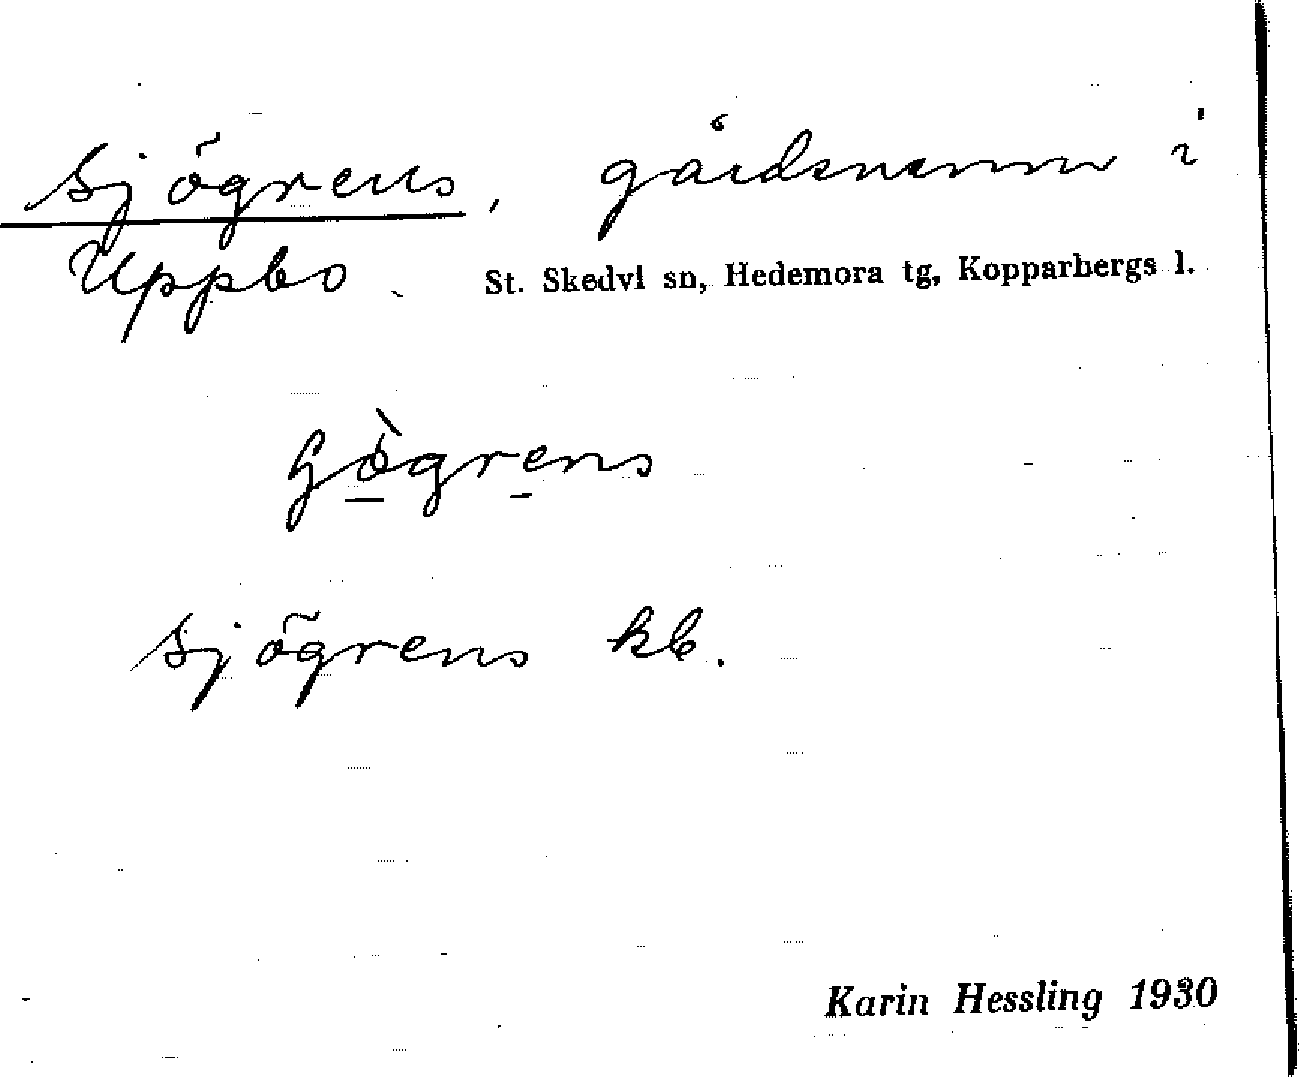 Sjögrens, gårdsnamn i
Uppbo. St. Skedvi sn, Hedemora tg, Kopparbergs l.
Sjögrens kb.
Karin Hessling 1930